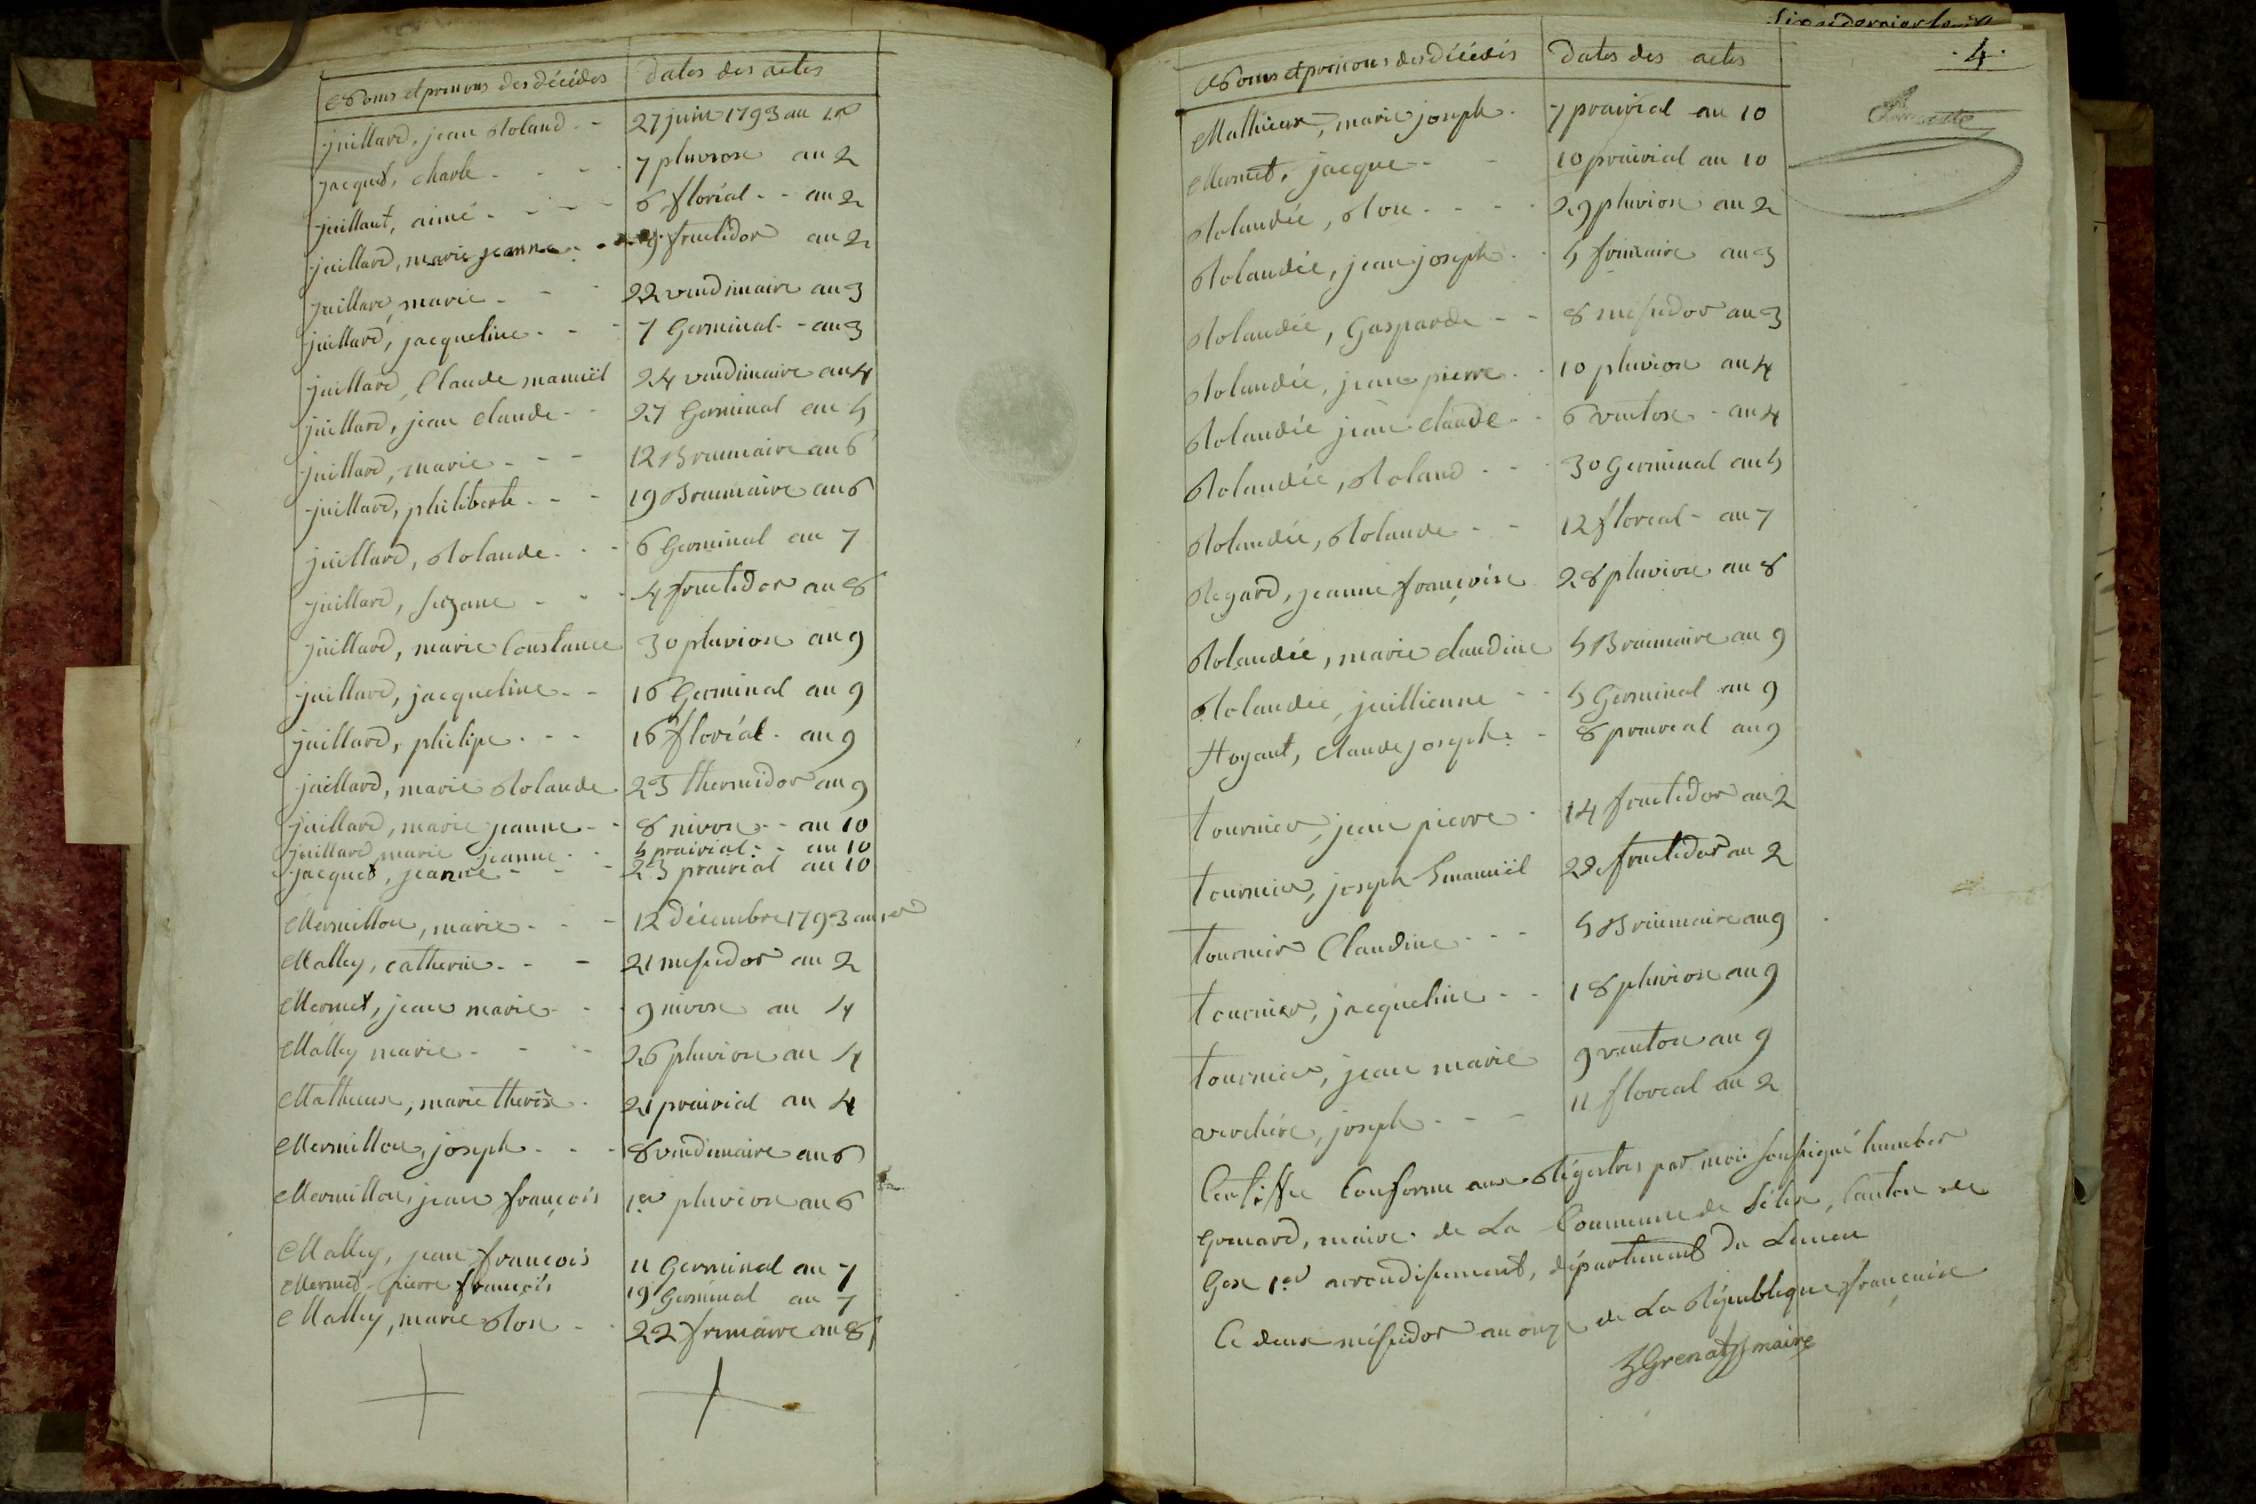 Noms et prenoms des décédés | dates des actes
juillard, jean Roland - - | 27 juin 1793 an 1er
jacquet, charle - - - - | 7 pluviose an 2
juillant, aimé - - - - | 6 floréal - - an 2
juillard, marie jeanne - | 9 fructidor an 2
juillard, marie - - - | 22 vendimaire an 3
juillard, jacqueline - - - | 7 Germinal - - an 3
juillard, Claude manuiel | 24 vendimaire an 4
juillard, jean claude - - | 27 Germinal an 5
juillard, marie - - - | 12 Brumaire an 6
juillard, philiberte - - - | 19 Brumaire an 6
juillard, Rolande - - - | 6 Germinal an 7
juillard, suzane - - - | 4 fructidor an 8
juillard, marie Constance | 30 pluviose an 9
juillard, jacqueline - - | 16 Germinal an 9
juillard, philipe - - - | 16 floréal - an 9
juillard, marie Rolande - | 23 thermidor an 9
juillard, marie jeanne - - | 8 nivose - - an 10
juillard marie jeanne - - | 5 prairial - - an 10
jacquet, jeanne - - - | 23 prairial an 10
Mermillon, marie - - - | 12 décembre 1793 an 1er
Malley, catherine - - - | 21 messidor an 2
Mermet, jean marie - - - | 9 nivose an 4
Malley marie - - - | 26 pluviose an 4
Mathieux, marie therèse - | 21 prairial an 4
Mermillon, joseph - - - | 8 vendimaire an 6
Mermillon, jean françois | 1er pluviose an 6
Malley, jean françois | 11 Germinal an 7
Mermet pierre françois | 19 Germinal an 7
Malley, marie Rose - - | 22 frimaire an 8
. 4 .
Noms et prenoms des Décédés | Dates des actes
Mathieux, marie joseph - | 7 prairial an 10
Mermet, jacque - - | 10 prairial an 10
Rolandée, Rose - - - - | 29 pluviose an 2
Rolandée, jean joseph - - | 5 frimaire an 3
Rolandée, Gasparde - - | 8 messidor an 3
Rolandée, jean pierre - - | 10 pluviose an 4
Rolandée jean claude - - | 6 ventose - an 4
Rolandée, Roland - - - | 30 Germinal an 5
Rolandée, Rolande - - | 12 floreal - an 7
Regard, jeanne françoise | 28 pluviose an 8
Rolandée, marie claudine | 5 Brumaire an 9
Rolandée, juillienne - - | 5 Germinal an 9
Hoyant, Claude joseph - - | 8 prairial an 9
tournier, jean pierre - | 14 fructidor an 2
tournier, joseph Emanuiel | 22 fructidor an 2
tournier Claudine - - - | 5 Brumaire an 9
tournier, jacqueline - - | 18 pluviose an 9
tournier, jean marie | 9 ventose an 9
verchère, joseph - - - | 11 floreal an 2
Certiffié Conforme aux Régestres par moi soussigné humber
Grenard, maire - de La Commune de Lélex, Canton de
Gex 1er arrondissement, département du Leman
Ce deux messidor an onze de La République française
Grenard maire